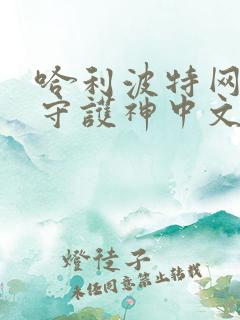 哈利波特网
守護神中文
燈徒子
未经同意禁止转载